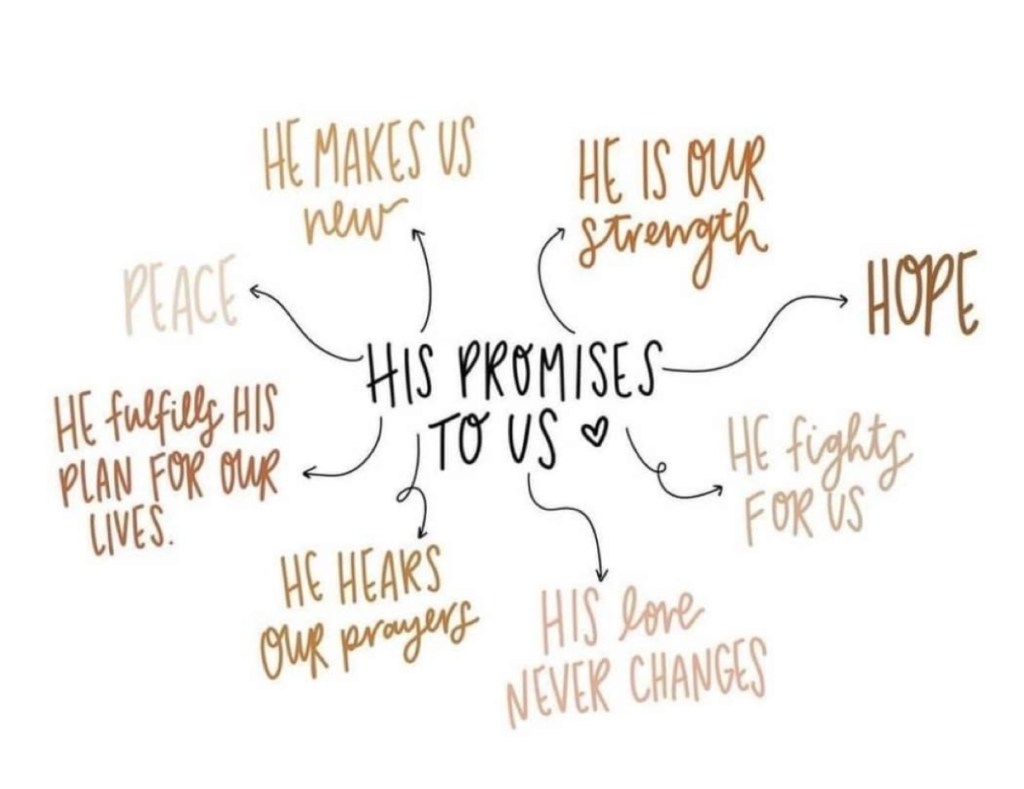 HE MAKES US
new
HE IS OUR
strength
PEACE
HOPE
HIS PROMISES
TO US
HE fulfills HIS
PLAN FOR OUR
LIVES.
HE fights
FOR US
HE HEARS
OUR prayers
HIS love
NEVER CHANGES